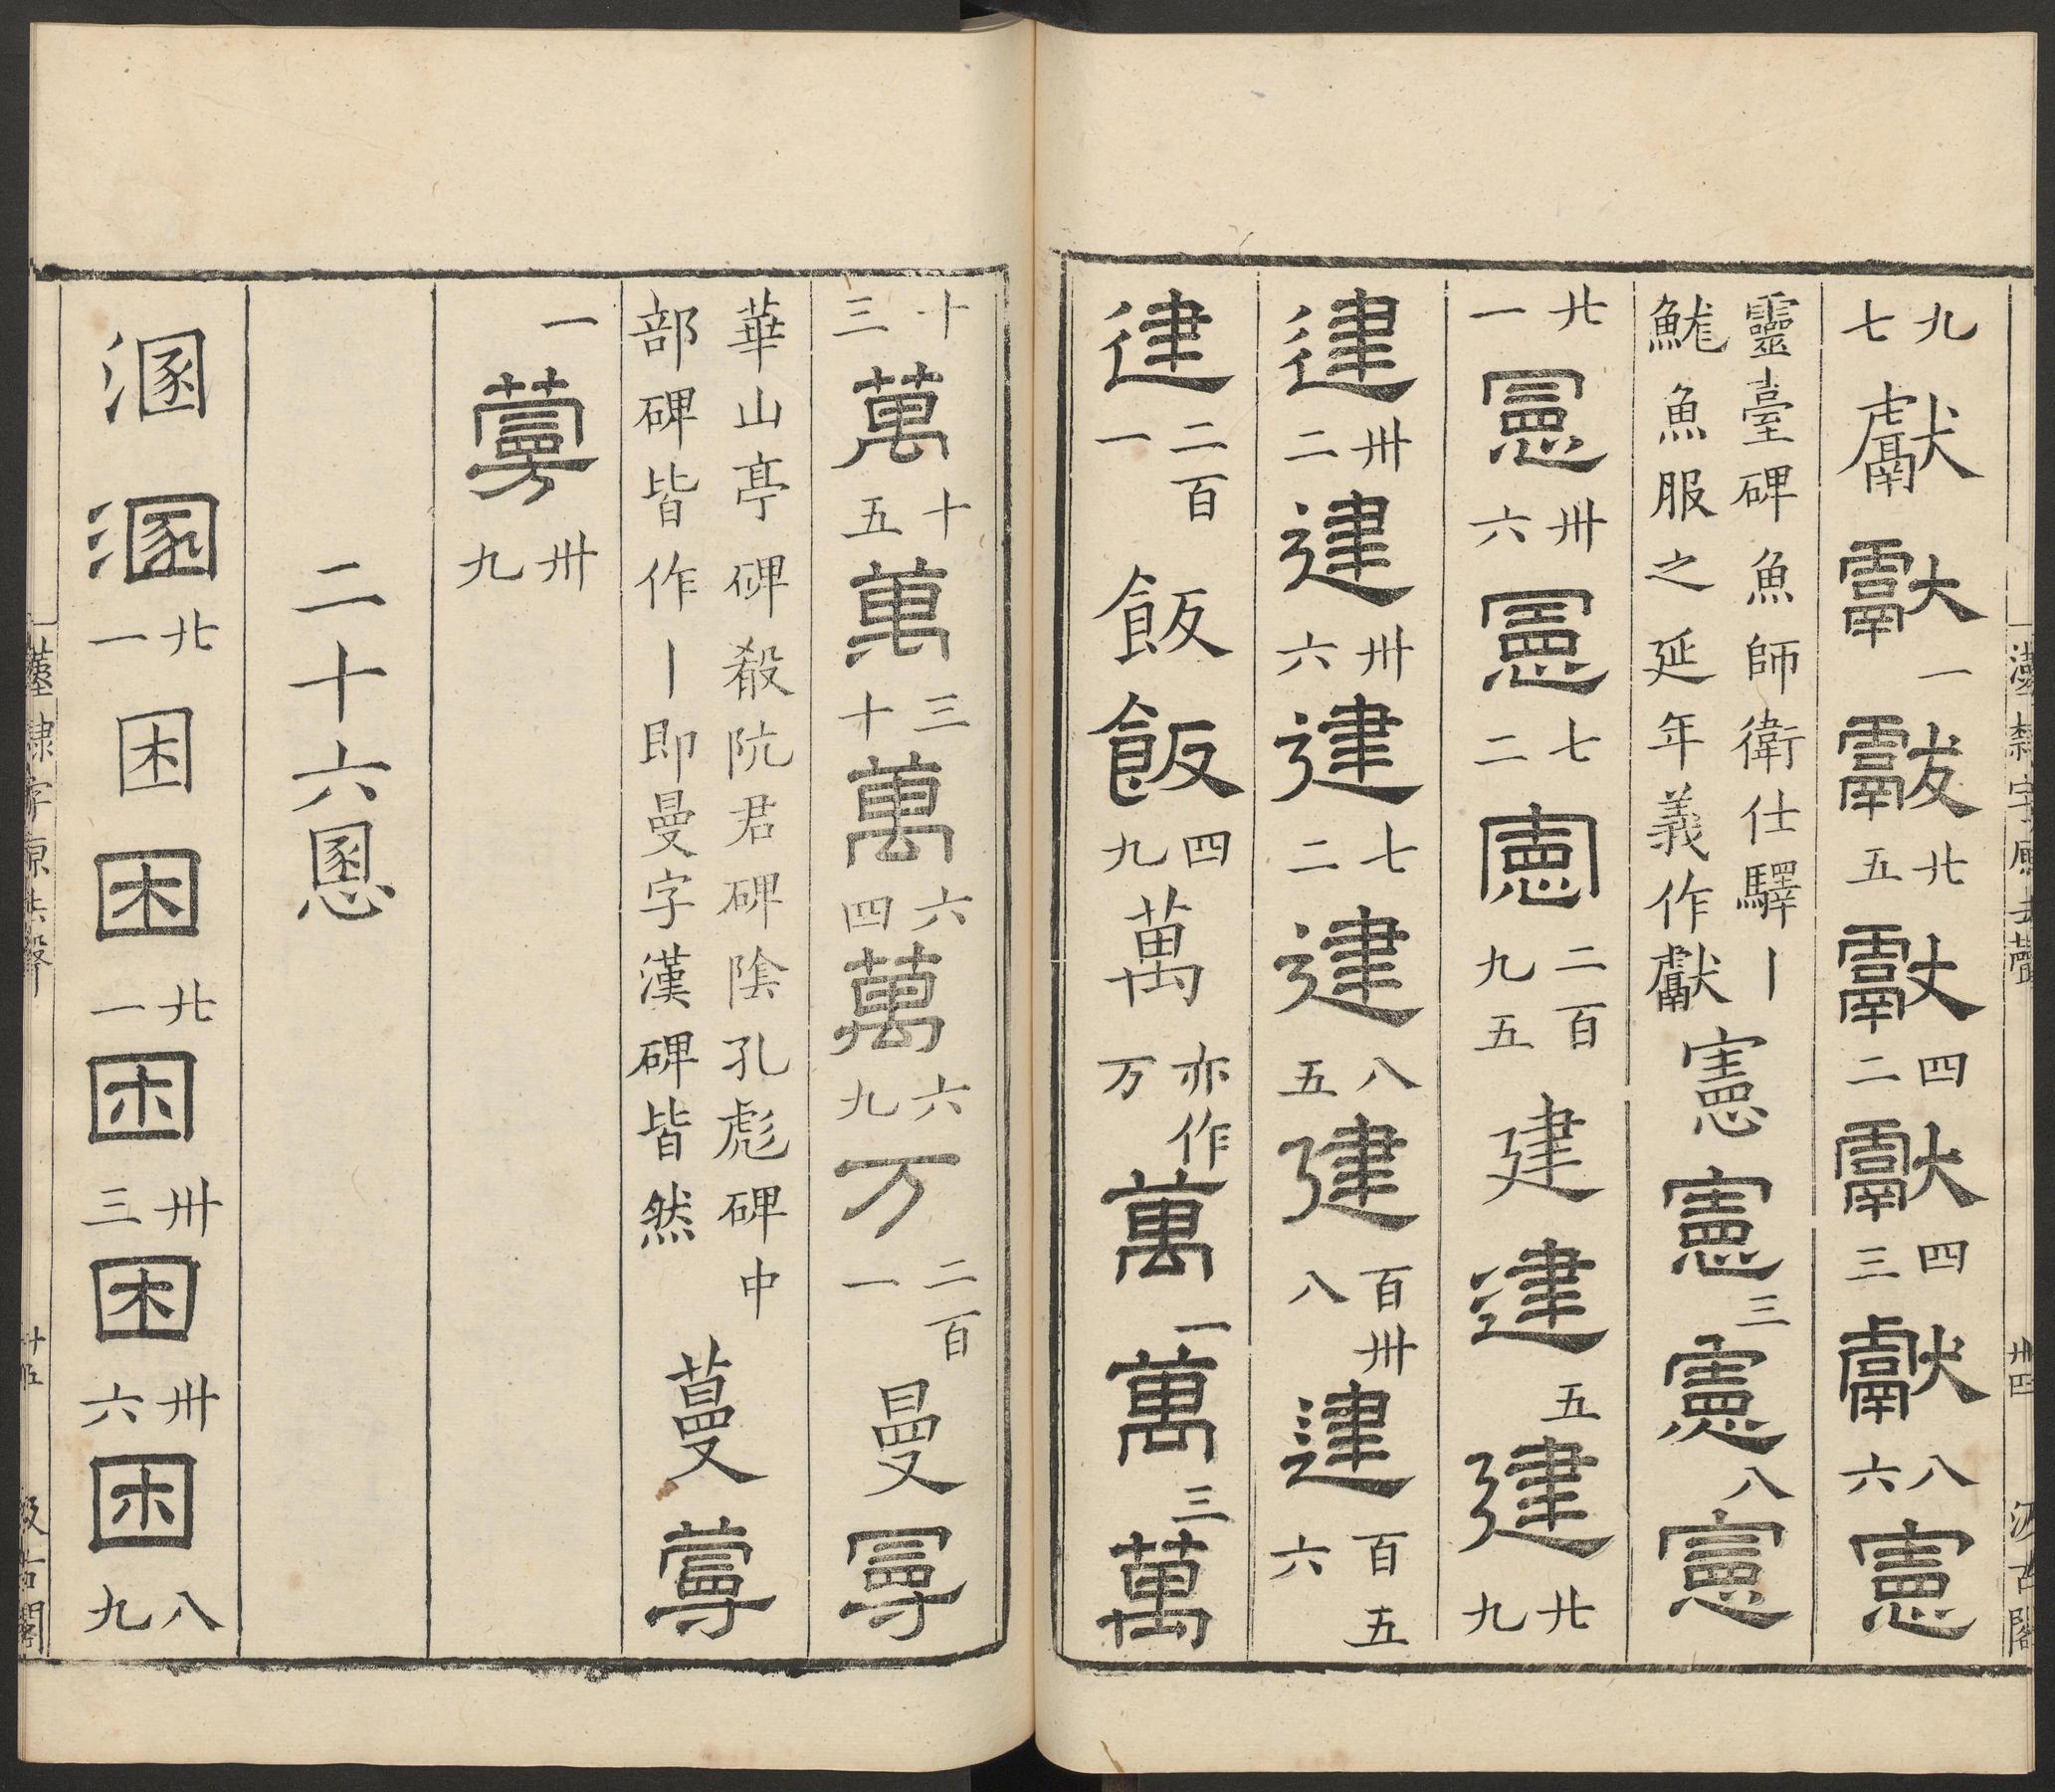 九七獻獻一獻廿五獻四二獻四三獻八六憲
靈臺碑魚師衛仕驛｜
魚服之延年義作獻憲憲三憲八憲
廿一憲卅六憲七二憲二百九五建建五建廿九
建卅二建卅六建七二建八五建百卅八建百五六
建二百一飯飯四九萬亦作万萬一萬三萬
漢隸字原去聲 卅四 汲古閣
十三萬十五萬三十萬六四萬六九万二百一曼曼
華山亭碑殽阬君碑陰孔彪碑中
部碑皆作｜即曼字漢碑皆然蔓蔓
一蔓卅九
二十六慁
溷溷廿一困困廿一困卅三困卅六困八九
漢隸字原去聲 卅五 汲古閣